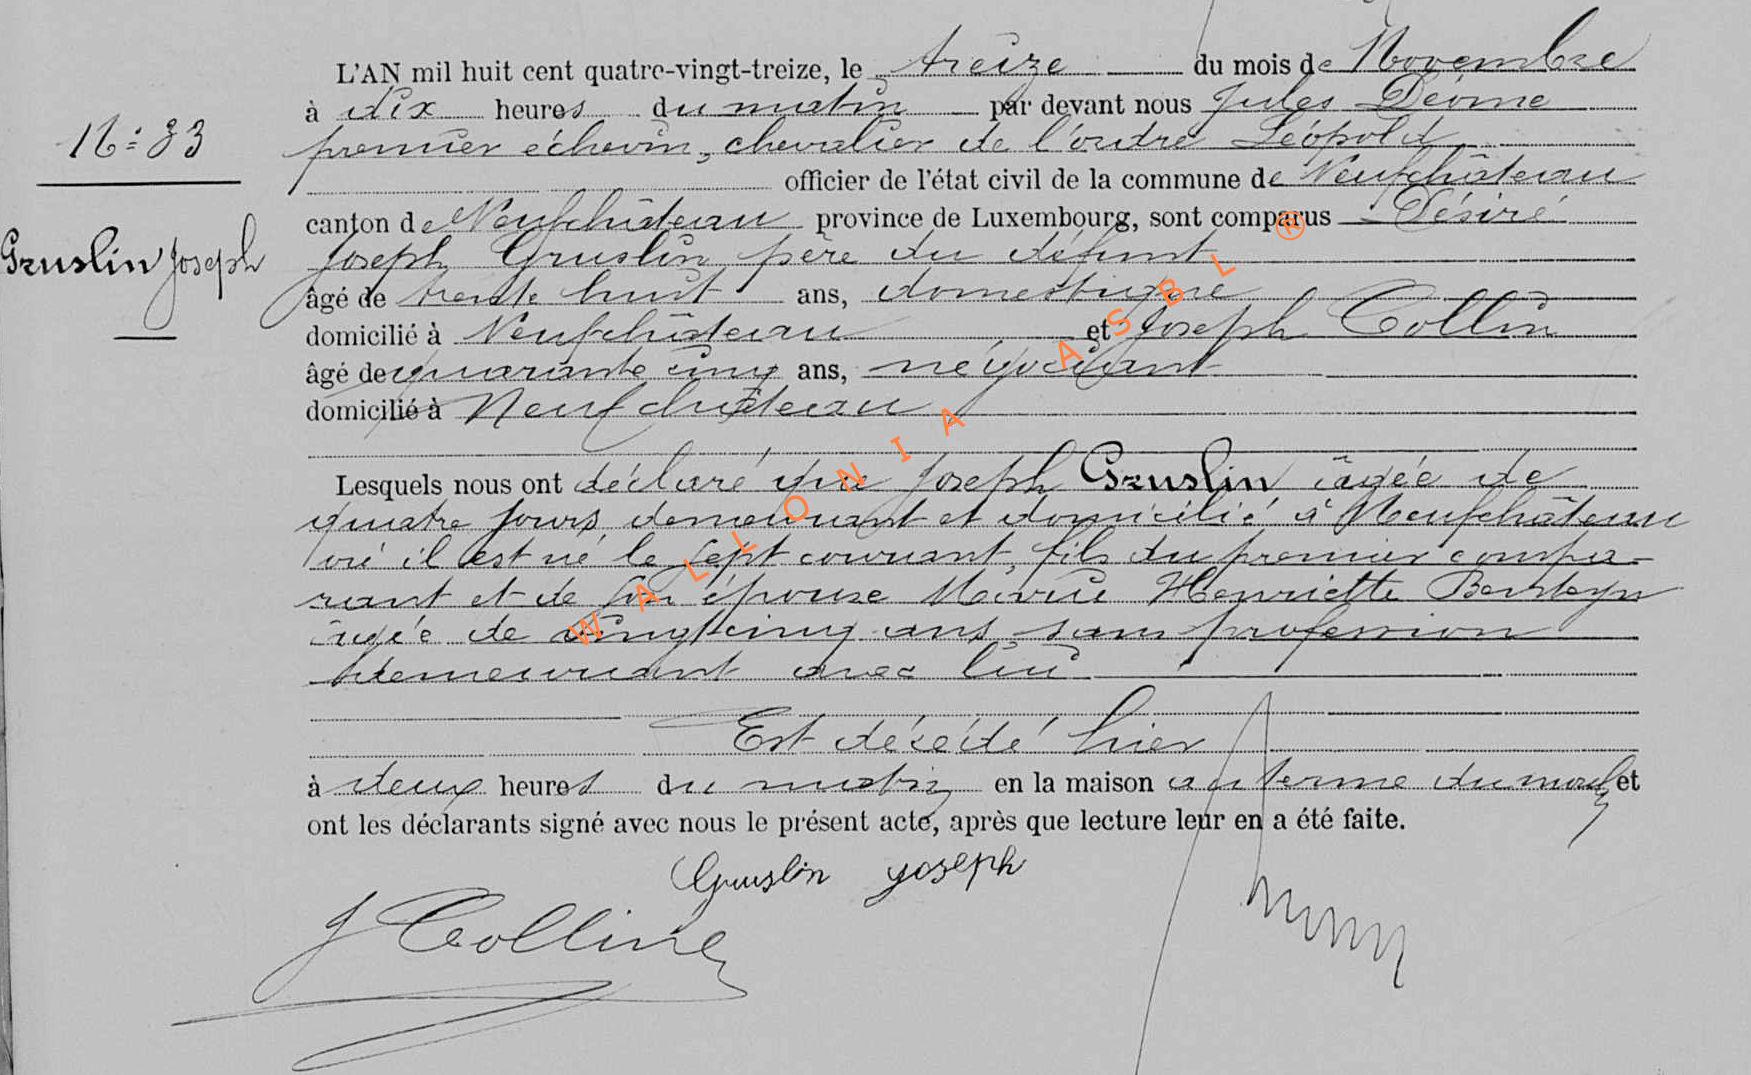 L'AN mil huit cent quatre-vingt-treize, le treize du mois de Novembre
à dix heures du matin par devant nous Jules
N° 33
premier échevin, chevalier de l'ordre Léopold
officier de l'état civil de la commune de Neufchâteau
canton de Neufchâteau province de Luxembourg, sont comparus Désiré
Gruslin Joseph
Joseph Gruslin père du défunt
âgé de trente huit ans, domestique
domicilié à Neufchâteau et Joseph Collin
âgé de quarante cinq ans, négociant
domicilié à Neufchâteau
Lesquels nous ont déclaré que Joseph Gruslin âgée de
quatre jours, demeurant et domicilié à Neufchâteau
où il est né le sept courant, fils du premier compa-
rant et de son épouse Marie Henriette
âgée de vingt cinq ans sans profession
demeurant avec lui
Est décédé hier
à deux heures du matin en la maison au terme et
ont les déclarants signé avec nous le présent acte, après que lecture leur en a été faite.
Gruslin Joseph
J Colline
WALLONIA ASBL ®